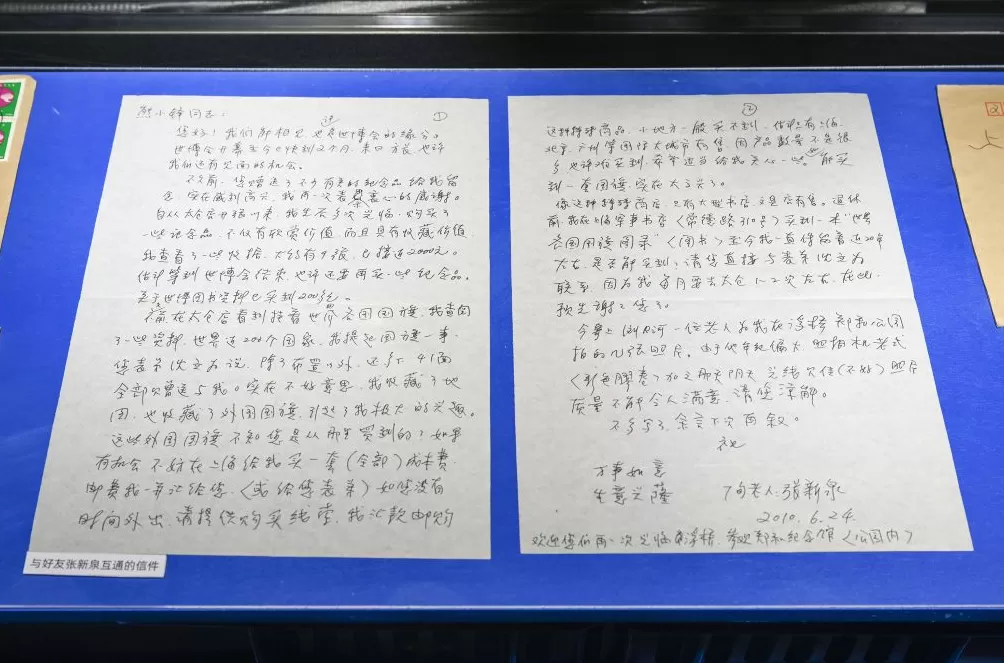 熊小锋同志：
①
您好！我们都相见也是世博会的缘分。
世博会开幕至今快到2个月，来日方长也许
我们还有见面的机会。
不久前，您赠送了不少有关的纪念品给我留
念，实在感到高兴，我再一次表示衷心的感谢。
自从太仓店开张以来，我先后多次光临，购买了
一些纪念品，不仅有欣赏价值，而且具有收藏价值，
我查看了一些收据，大约有 张，已接近2000元。
估计等到世博会结束，也许还要再买一些纪念品。
关于世博图书资料已买到200多元。
前在太仓店看到挂着世界各国国旗，我查阅
了一些资料，世界近200个国家，我提起国旗一事，
您表弟沈立为说，除了布置以外，还剩41面
全部赠送与我。实在不好意思，我收藏了地
图，也收藏了外国国旗，引起了我极大的兴趣。
这些外国国旗不知您是从那里买到的？如果
有机会不妨在上海给我买一套（全部）成本费，
邮费我一并汇给您，（或给您表弟）如您没有
时间外出，请提供购买线索，我汇款邮购
②
这种特殊商品，小地方一般买不到，估计上海、
北京、广州等国际大城市有售，因产品数量不是很
多，也许没有买到，希望适当给我关心一些。能买
到一套国旗，实在太高兴了。
像这种特殊商店，只有大型书店、文具店有售。退休
前，我在上海军事书店（常德路310号）买到一本“世界
各国国旗图集”（图书）至今我一直保留着近20年
左右，是否能买到？请您直接与表弟沈立为
联系，因为我每月要去太仓1—2次左右，在此，
预先谢谢您了。
今寄上浏河一位老人为我在浮桥郑和公园
拍的几张照片。由于他年纪偏大，照相机老式
（彩色胶卷）加之那天阴天，光线欠佳（不好）照片
质量不能令人满意，请您谅解。
不多写了，余言下次再叙。
祝
万事如意
生意兴隆
7旬老人：张新泉
2010.6.24.
欢迎您们再一次光临浮桥，参观郑和纪念馆（公园内）
与好友张新泉互通的信件